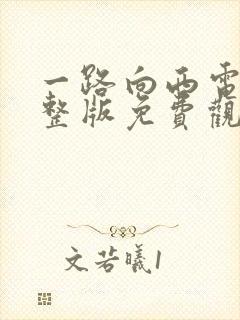 一路向西電
整版免費觀
文若曦1